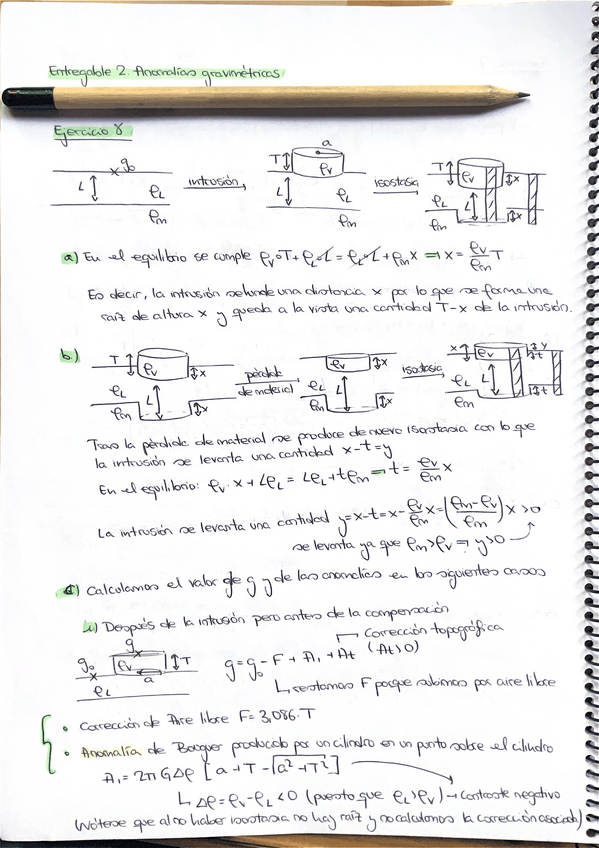 Entregable 2. Anomalías gravimétricas
Ejercicio 8
g₀
L
ρL
ρm
intrusión
a
T
ρv
L
ρL
ρm
isostasia
T
ρv
x
ρL
L
ρm
x
a) En el equilibrio se cumple ρv·T + ρL·L = ρL·L + ρm x ⇒ x = ρv/ρm T
Es decir, la intrusión se hunde una distancia x por lo que se forma una
raíz de altura x y queda a la vista una cantidad T-x de la intrusión.
b)
T
ρv
x
ρL
L
ρm
x
pérdida
de material
ρv
x
ρL
L
ρm
x
isostasia
x
ρv
y
t
ρL
L
ρm
t
Tras la pérdida de material se produce de nuevo isostasia con lo que
la intrusión se levanta una cantidad x-t=y
En el equilibrio: ρv·x + LρL = LρL + tρm ⇒ t = ρv/ρm x
La intrusión se levanta una cantidad y=x-t=x-ρv/ρm x=((ρm-ρv)/ρm) x >0
se levanta ya que ρm>ρv ⇒ y>0
c) Calculamos el valor de g y de las anomalías en los siguientes casos
i) Después de la intrusión pero antes de la compensación
g
g₀
ρv
T
a
ρL
g = g₀ - F + A₁ + At
Corrección topográfica
(At>0)
restamos F porque subimos por aire libre
• Corrección de Aire libre F=3,086·T
• Anomalía de Bouguer producida por un cilindro en un punto sobre el cilindro
A₁ = 2π G Δρ [a + T - √(a²+T²)]
Δρ = ρv - ρL < 0 (puesto que ρL>ρv) → Contraste negativo
(Nótese que al no haber isostasia no hay raíz y no calculamos la corrección asociada)